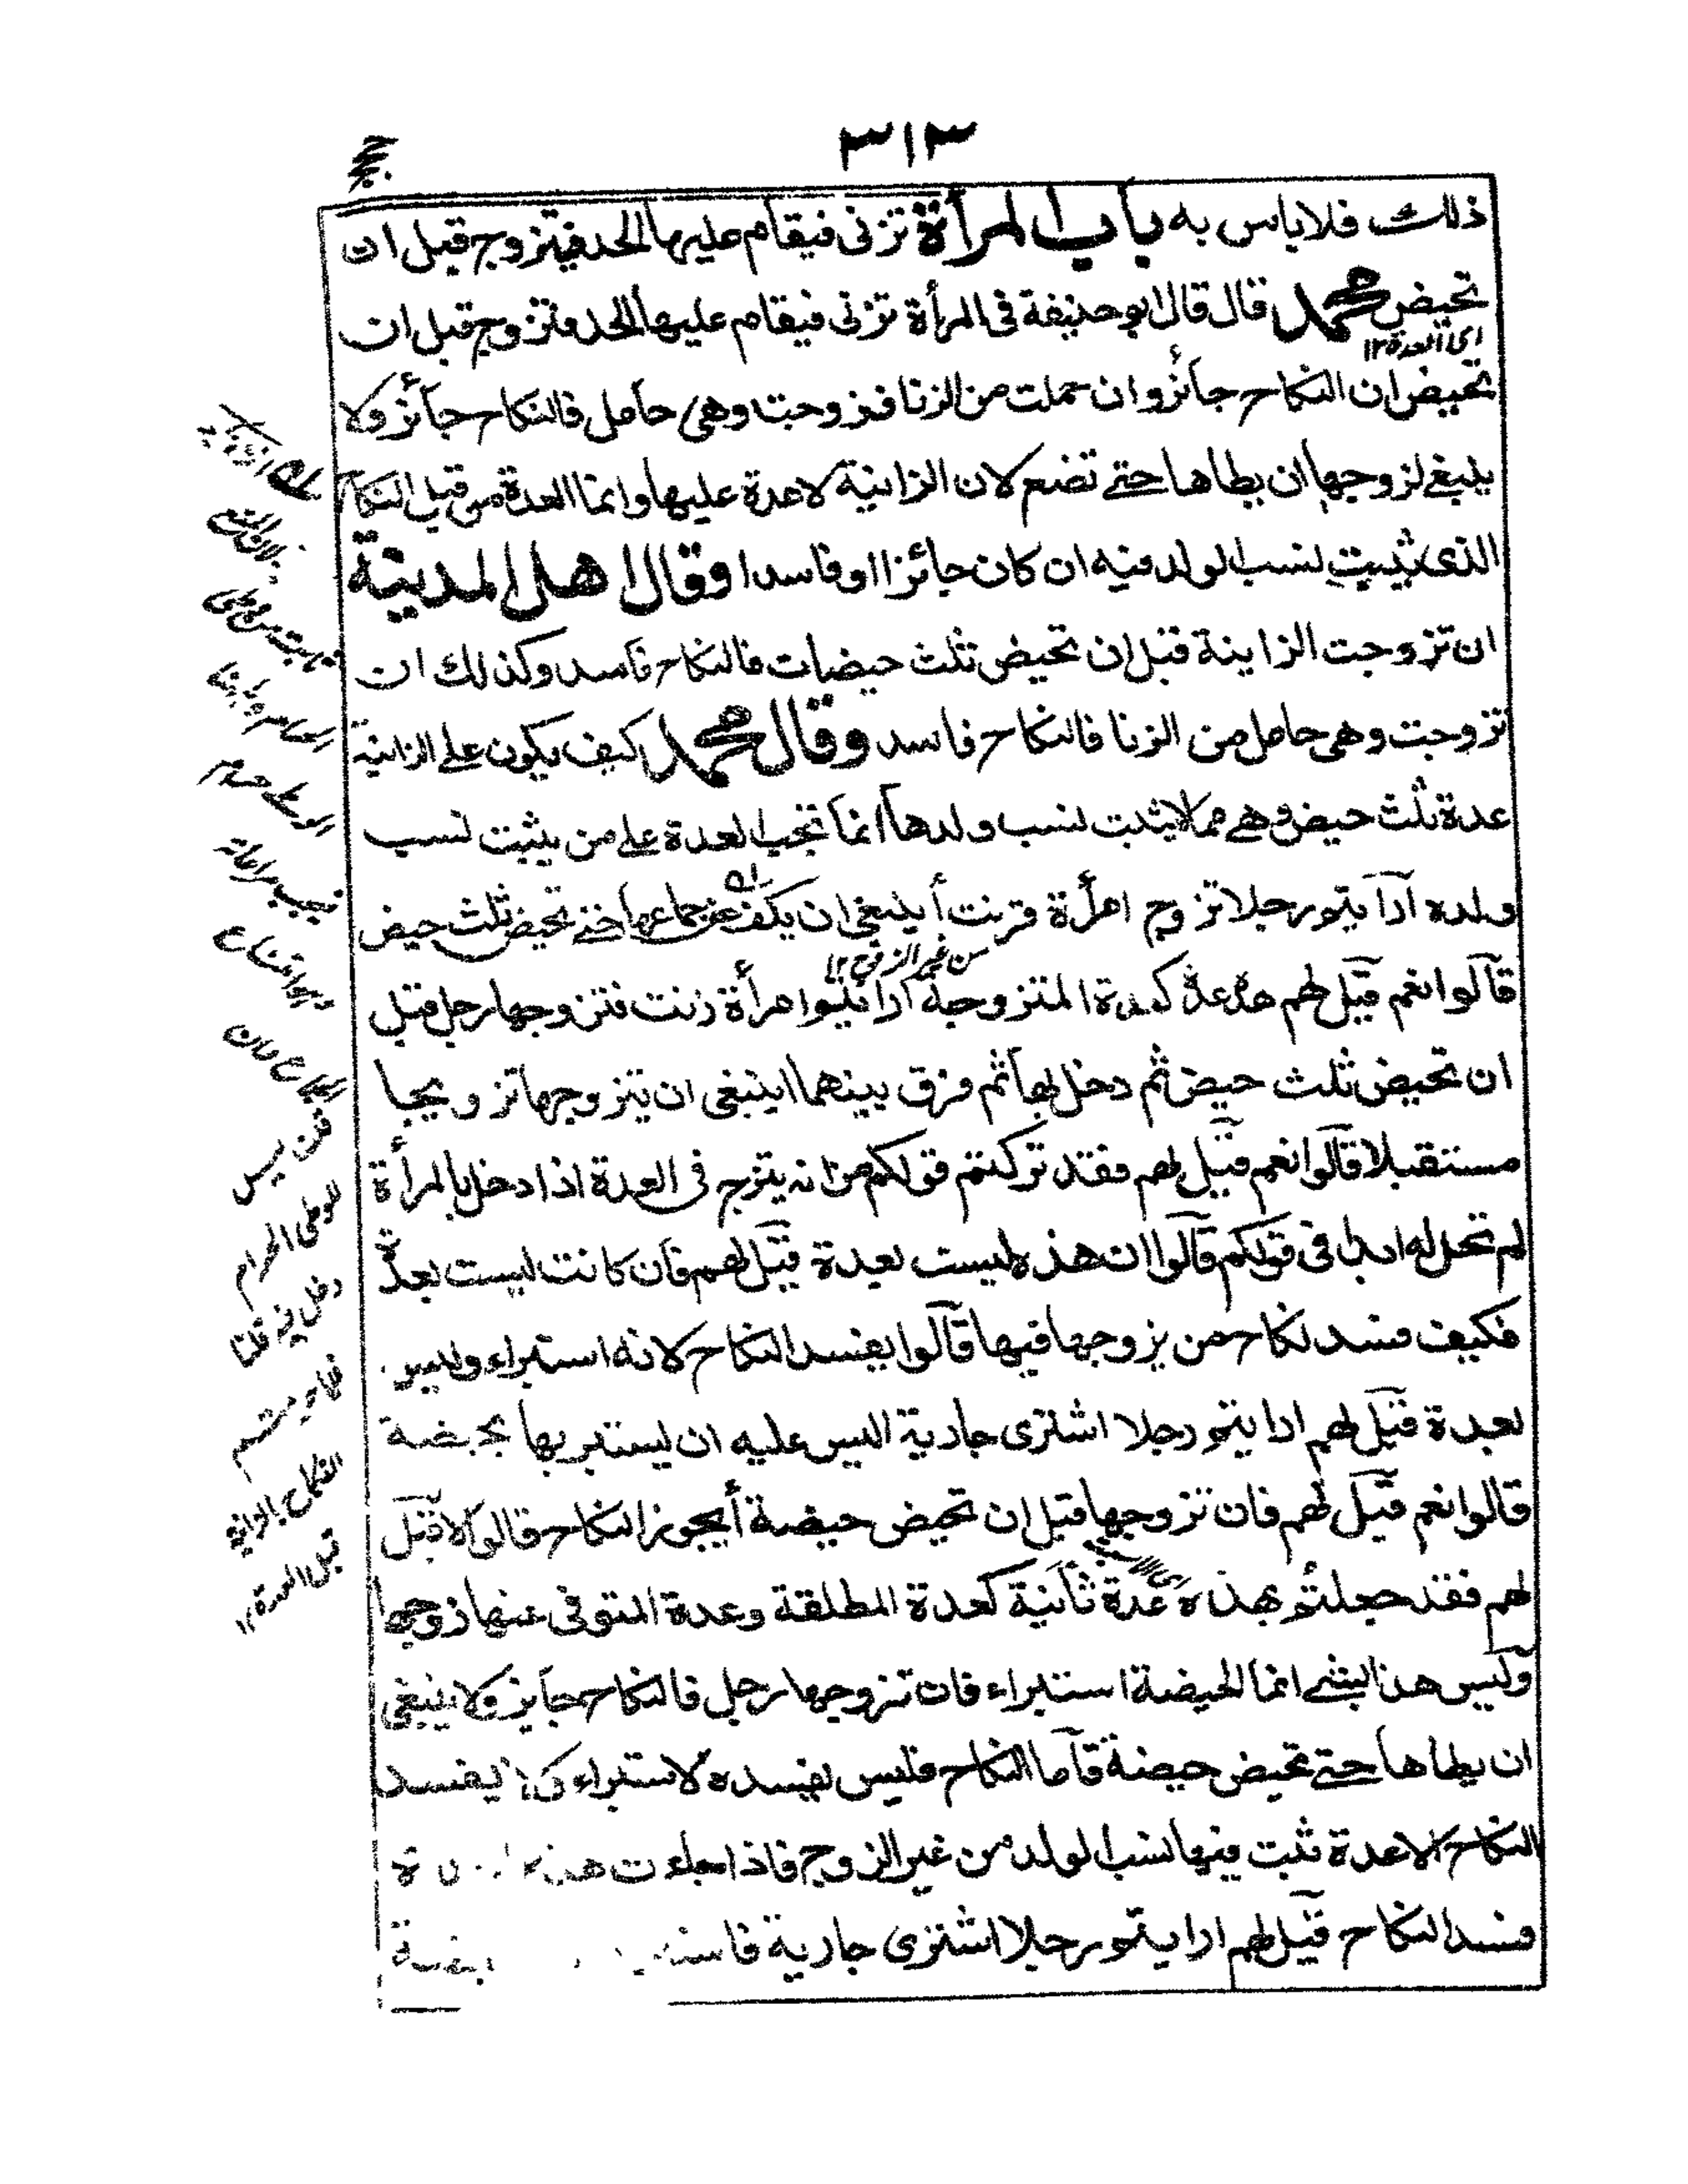 ٣١٣
ذلك فلا باس به باب المرأة تزنى فيقام عليها الحد فيتزوج قبل ان
تحيض محمد قال قال ابو حنيفة فى المرأة تزنى فيقام عليها الحد وتزوج قبل ان
اى العدة ١٢
تحيض ان النكاح جائز وان حملت من الزنا فتزوجت وهى حامل فالنكاح جائز ولا
ينبغى لزوجها ان يطاها حتى تضع لان الزانية لا عدة عليها وانما العدة من قبل النكاح
الذى يثبت نسب الولد فيه ان كان جائزا او فاسدا وقال اهل المدينة
ان تزوجت الزاينة قبل ان تحيض ثلث حيضات فالنكاح فاسد وكذلك ان
تزوجت وهى حامل من الزنا فالنكاح فاسد وقال محمد كيف يكون على الزانية
عدة ثلث حيض وهى مما لا يثبت نسب ولدها انما تجب العدة على من يثبت نسب
ولده أرأيتم رجلا تزوج امرأة قزنت أينبغى ان يكف عن جماعها حتى تحيض ثلث حيض
من غير الزوج ١٢
قالوا نعم قيل لهم هذه عدة كعدة المتزوجة أرأيتم امرأة زنت فتزوجها رجل قبل
ان تحيض ثلث حيض ثم دخل بها ثم فرق بينهما اينبغى ان يتزوجها تزويجا
مستقبلا قالوا نعم قيل لهم فقد تركتم قولكم من انه يتزوج فى العدة اذا دخل بالمرأة
لم تحل له ابدا فى قولكم قالوا ان هذه ليست بعدة قيل لهم فان كانت ليست بعدة
فكيف فسد نكاح من يزوجها فيها قالوا يفسد النكاح لانه استبراء وليس
بعدة قيل لهم ارايتم رجلا اشترى جارية اليس عليه ان يستبريها بحيضة
قالوا نعم قيل لهم فان تزوجها قبل ان تحيض حيضة أيجوز النكاح قالوا لا قيل
لهم فقد جعلتم هذه عدة ثانية كعدة المطلقة وعدة المتوفى عنها زوجها
وليس هذا بشئ انما الحيضة استبراء فان تزوجها رجل فالنكاح جايز ولا ينبغى
ان يطاها حتى تحيض حيضة فاما النكاح فليس يفسده لاستبراء يفسد
النكاح الا عدة ثبت فيها نسب الولد من غير الزوج فاذا جاءت هذه
فسد النكاح قيل لهم ارايتم رجلا اشترى جارية
الوطى حرام
النكاح فان
فمن ليس
للوطى الحرام
دخل فيه قلنا
قبل العدة ١٢